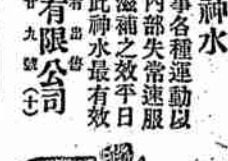 神水
事各種運動以
內部失常速服
滋補之效平日
此神水最有效
若出售
有限公司
九號(十)